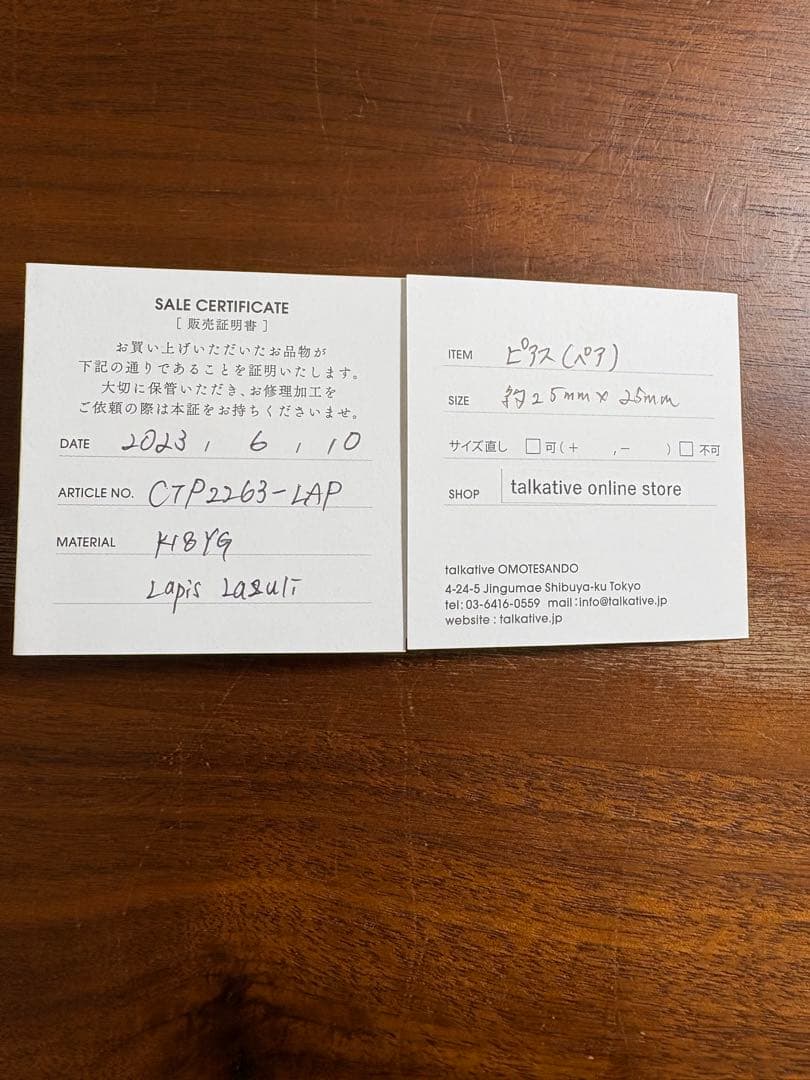 SALE CERTIFICATE
[ 販売証明書 ]
お買い上げいただいたお品物が
下記の通りであることを証明いたします。
大切に保管いただき、お修理加工を
ご依頼の際は本証をお持ちくださいませ。
DATE 2023, 6, 10
ARTICLE NO. CTP2263-LAP
MATERIAL K18YG
Lapis Lazuli
ITEM ピアス(ペア)
SIZE 約25mm×25mm
サイズ直し □可(+ ,− ) □不可
SHOP talkative online store
talkative OMOTESANDO
4-24-5 Jingumae Shibuya-ku Tokyo
tel:03-6416-0559 mail:info@talkative.jp
website : talkative.jp